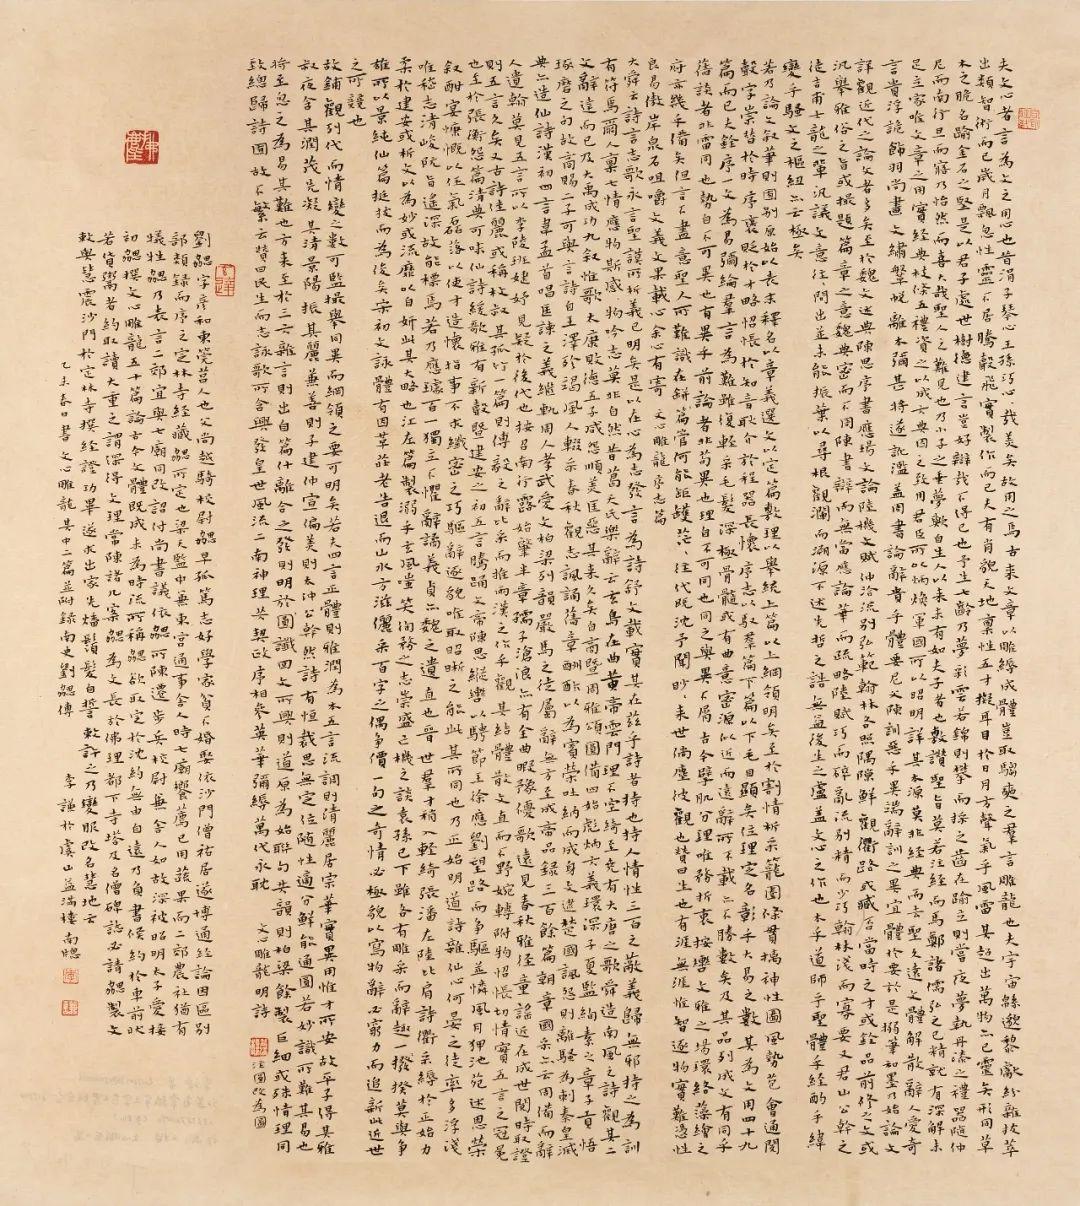 夫文心者言為文之用心也昔涓子琴心王孫巧心哉美矣故用之焉古來文章以雕縟成體豈取騶奭之羣言雕龍也夫宇宙緜邈黎獻紛雜拔萃
出類智術而已歲月飄忽性靈不居騰聲飛實製作而已夫有肖貌天地稟性五才擬耳目於日月方聲氣乎風雷其超出萬物亦已靈矣形同草
木之脆名踰金石之堅是以君子處世樹德建言豈好辯哉不得已也予生七齡乃夢彩雲若錦則攀而採之齒在踰立則嘗夜夢執丹漆之禮器隨仲
尼而南行旦而寤乃怡然而喜大哉聖人之難見也乃小子之垂夢歟自生人以來未有如夫子者也敷讚聖旨莫若注經而馬鄭諸儒弘之已精就有深解未
足立家唯文章之用實經典枝條五禮資之以成六典因之致用君臣所以炳煥軍國所以昭明詳其本源莫非經典而去聖久遠文體解散辭人愛奇
言貴浮詭飾羽尚畫文繡鞶帨離本彌甚將遂訛濫蓋周書論辭貴乎體要尼父陳訓惡乎異端辭訓之異宜體於要於是搦筆和墨乃始論文
詳觀近代之論文者多矣至於魏文述典陳思序書應瑒文論陸機文賦仲洽流別弘範翰林各照隅隙鮮觀衢路或臧否當時之才或銓品前修之文或
汎舉雅俗之旨或撮題篇章之意魏典密而不周陳書辯而無當應論華而疏略陸賦巧而碎亂流別精而少巧翰林淺而寡要又君山公幹之
徒吉甫士龍之輩汎議文意往往間出並未能振葉以尋根觀瀾而溯源不述先哲之誥無益後生之慮蓋文心之作也本乎道師乎聖體乎經酌乎緯
變乎騷文之樞紐亦云極矣
若乃論文敘筆則囿別原始以表末釋名以章義選文以定篇敷理以舉統上篇以上綱領明矣至於割情析采籠圈條貫摛神性圖風勢苞會通閱
聲字崇替於時序褒貶於才略怊悵於知音耿介於程器長懷序志以馭羣篇下篇以下毛目顯矣位理定名彰乎大易之數其為文用四十九
篇而已夫銓序一文為易彌綸羣言為難雖復輕采毛髮深極骨髓或有曲意密源似近而遠辭所不載亦不勝數矣及其品列成文有同乎
舊談者非雷同也勢自不可異也有異乎前論者非苟異也理自不可同也同之與異不屑古今擘肌分理唯務折衷按轡文雅之場環絡藻繪之
府亦幾乎備矣但言不盡意聖人所難識在缾管何能矩矱茫茫往代既沈予聞眇眇來世倘塵彼觀也贊曰生也有涯無涯惟智逐物實難憑性
良易傲岸泉石咀嚼文義文果載心余心有寄 文心雕龍序志篇
大舜云詩言志歌永言聖謨所析義已明矣是以在心為志發言為詩舒文載實其在茲乎詩者持也持人情性三百之蔽義歸無邪持之為訓
有符焉爾人稟七情應物斯感感物吟志莫非自然昔葛天氏樂辭云玄鳥在曲黃帝雲門理不空綺至堯有大唐之歌舜造南風之詩觀其二
文辭達而已及大禹成功九敘惟歌太康敗德五子咸怨順美匡惡其來久矣自商暨周雅頌圓備四始彪炳六義環深子夏監絢素之章子貢悟
琢磨之句故商賜二子可與言詩自王澤殄竭風人輟采春秋觀志諷誦舊章酬酢以為賓榮吐納而成身文逮楚國諷怨則離騷為刺秦皇滅
典亦造仙詩漢初四言韋孟首唱匡諫之義繼軌周人孝武愛文柏梁列韻嚴馬之徒屬辭無方至成帝品錄三百餘篇朝章國采亦云周備而辭
人遺翰莫見五言所以李陵班婕妤見疑於後代也按召南行露始肇半章孺子滄浪亦有全曲暇豫優歌遠見春秋雅徑童謠近在成世閱時取證
則五言久矣又古詩佳麗或稱枚叔其孤竹一篇則傅毅之辭比采而推兩漢之作乎觀其結體散文直而不野婉轉附物怊悵切情實五言之冠冕
也至於張衡怨篇清典可味仙詩緩歌雅有新聲暨建安之初五言騰踊文帝陳思縱轡以騁節王徐應劉望路而爭驅並憐風月狎池苑述恩榮
敘酣宴慷慨以任氣磊落以使才造懷指事不求纖密之巧驅辭逐貌唯取昭晰之能此其所同也乃正始明道詩雜仙心何晏之徒率多浮淺
唯嵇志清峻阮旨遙深故能標焉若乃應璩百一獨立不懼辭譎義貞亦魏之遺直也晉世羣才稍入輕綺張潘左陸比肩詩衢采縟於正始力
柔於建安或析文以為妙或流靡以自妍此其大略也江左篇製溺乎玄風嗤笑徇務之志崇盛亡機之談袁孫已下雖各有雕采而辭趣一揆莫與爭
雄所以景純仙篇挺拔而為俊矣宋初文詠體有因革莊老告退而山水方滋儷采百字之偶爭價一句之奇情必極貌以寫物辭必窮力而追新此近世
之所競也
故鋪觀列代而情變之數可監撮舉同異而綱領之要可明矣若夫四言正體則雅潤為本五言流調則清麗居宗華實異用惟才所安故平子得其雅
叔夜含其潤茂先凝其清景陽振其麗兼善則子建仲宣偏美則太沖公幹然詩有恒裁思無定位隨性適分鮮能通圓若妙識所難其易也
將至忽之為易其難也方來至於三六雜言則出自篇什離合之發則明於圖讖回文所興則道原為始聯句共韻則柏梁餘製巨細或殊情理同
致總歸詩囿故不繁云贊曰民生而志詠歌所含興發皇世風流二南神理共契政序相參英華彌縟萬代永耽 文心雕龍明詩 注圖改為囿
劉勰字彥和東莞莒人也父尚越騎校尉勰早孤篤志好學家貧不婚娶依沙門僧祐居遂博通經論因區別
部類錄而序之定林寺經藏勰所定也梁天監中兼東宮通事舍人時七廟饗薦已用蔬果而二郊農社猶有
犧牲勰乃表言二郊宜與七廟同改詔付尚書議依勰所陳遷步兵校尉兼舍人如故深被昭明太子愛接
初勰撰文心雕龍五十篇論古今文體既成未為時流所稱勰欲取定於沈約無由自達乃負書候約於車前狀
若貨鬻者約取讀大重之謂深得文理常陳諸几案勰為文長於佛理都下寺塔及名僧碑誌必請勰製文
敕與慧震沙門於定林寺撰經證功畢遂求出家先燔鬚髮自誓敕許之乃變服改名慧地云
乙未春日書文心雕龍其中二篇並附錄南史劉勰傳 李謹於虞山益滿樓南牕